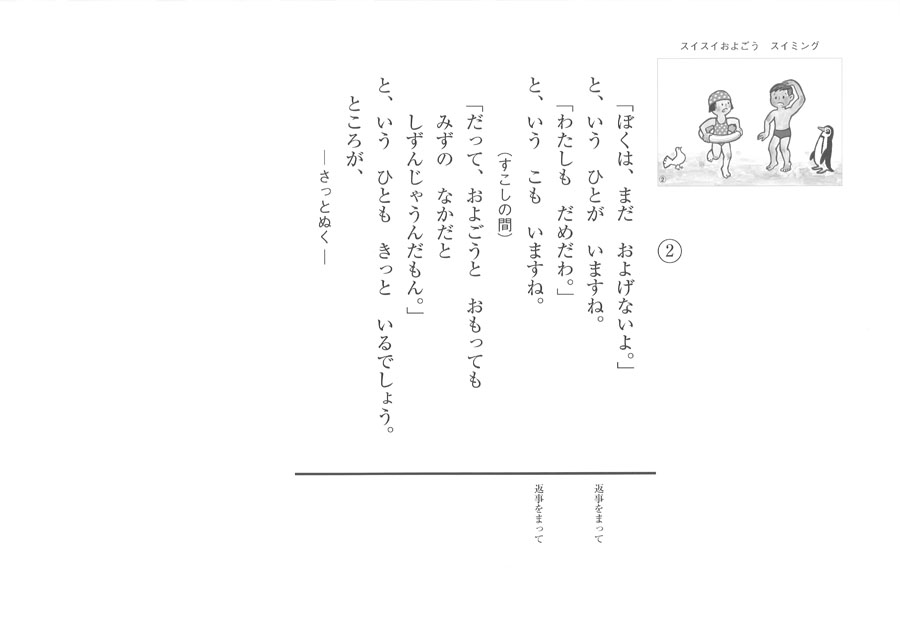 スイスイおよごう　スイミング
②
②
「ぼくは、まだ　およげないよ。」
と、いう　ひとが　いますね。
「わたしも　だめだわ。」
と、いう　こも　いますね。
（すこしの間）
「だって、およごうと　おもっても
みずの　なかだと
しずんじゃうんだもん。」
と、いう　ひとも　きっと　いるでしょう。
ところが、
―さっとぬく―
返事をまって
返事をまって